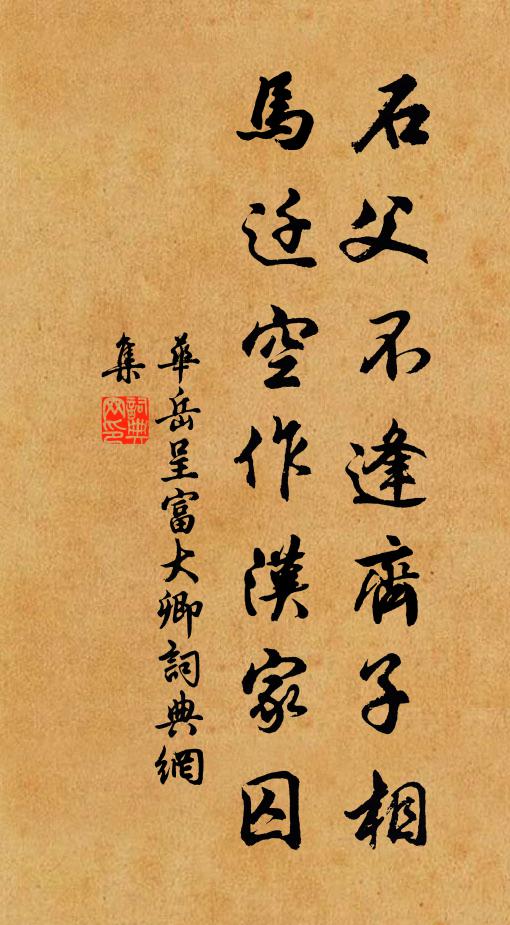 石父不逢齊子相
馬迁空作漢家囚
華岳呈富大卿詞典網
集
詞典网印